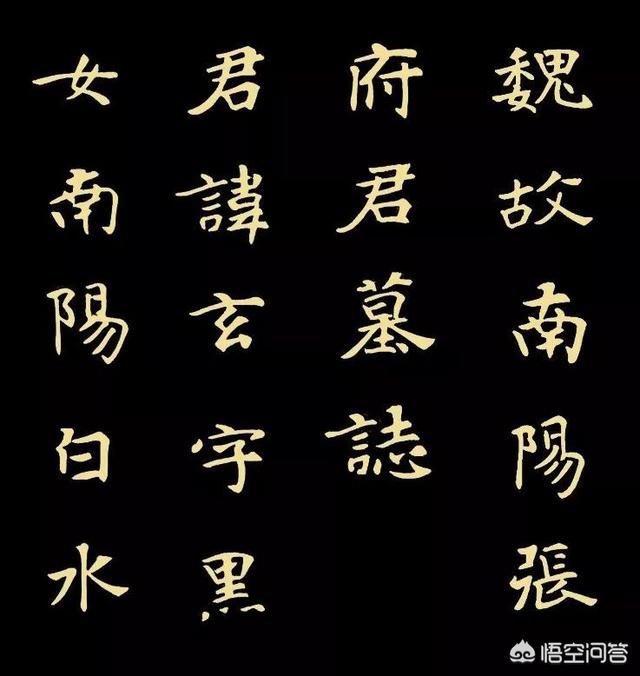 魏故南陽張
府君墓誌
君諱玄字黑
女南陽白水
悟空问答